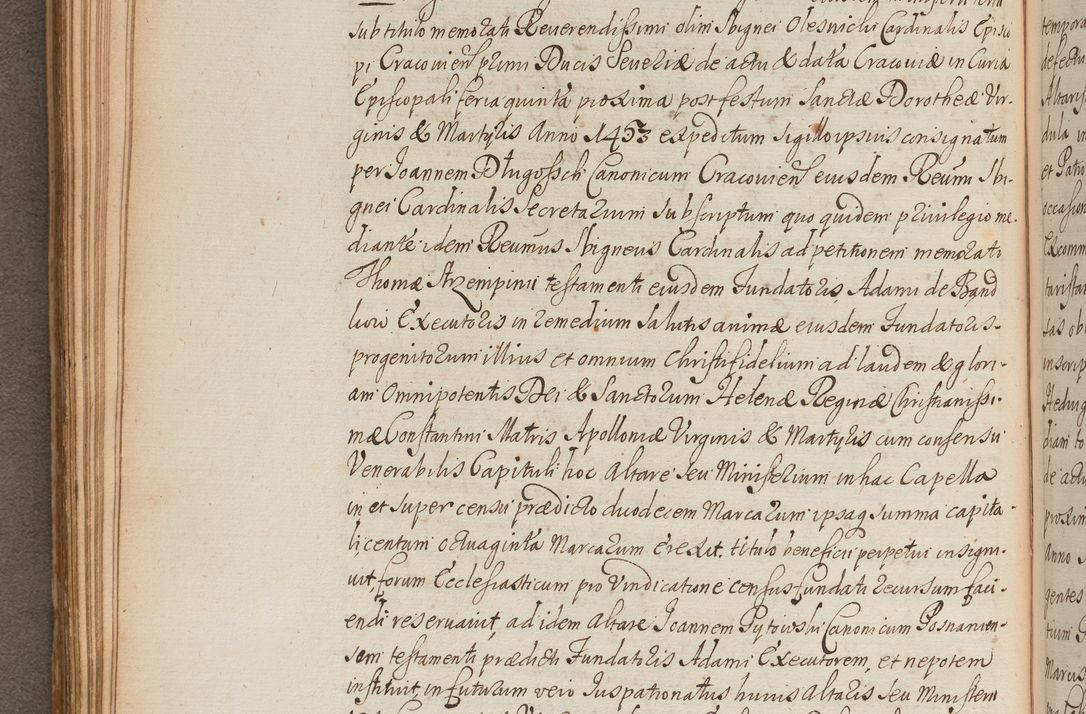 sub titulo memorati Reverendissimi olim Sbignei Olesnicki Cardinalis Episco
pi Cracovien̄ primi Ducis Severiæ de actu & data Cracoviæ in Curia
Episcopali feria quinta proxima post festum Sanctæ Dorotheæ Vir-
ginis & Martyris Anno 1453 expeditum sigillo ipsius consignatum
per Joannem Długossch Canonicum Cracovien̄ eiusdem Reūmi Sbi-
gnei Cardinalis Secretarium subscriptum quo quidem privilegio me-
diante idem Reūmus Sbigneus Cardinalis ad petitionem memorati
Thomæ Strzempini testamenti eiusdem Fundatoris Adami de Band
kovi Executoris in remedium salutis animæ eiusdem Fundatoris-
progenitorum illius et omnium Christifidelium ad laudem & glori-
am Omnipotentis Dei & Sanctorum Helenæ Reginæ Christianissi-
mæ Constantini Matris Apolloniæ Virginis & Martyris cum consensu
Venerabilis Capituli hoc altare seu Ministerium in hac Capella
in et super censu prædicto duodecem Marcarum ipsaq summa capita-
li centum octuaginta Marcarum erexit, titulo beneficii perpetui insigni-
vit, forum Ecclesiasticum pro vindicatione census fundati recursum faci-
endi reservavit, ad idem altare Joannem Pytrowski Canonicum Posnanien-
sem testamenti prædicti Fundatoris Adami Executorem, et nepotem
instituit, in futurum vero Jus patronatus huius altaris seu Ministerii